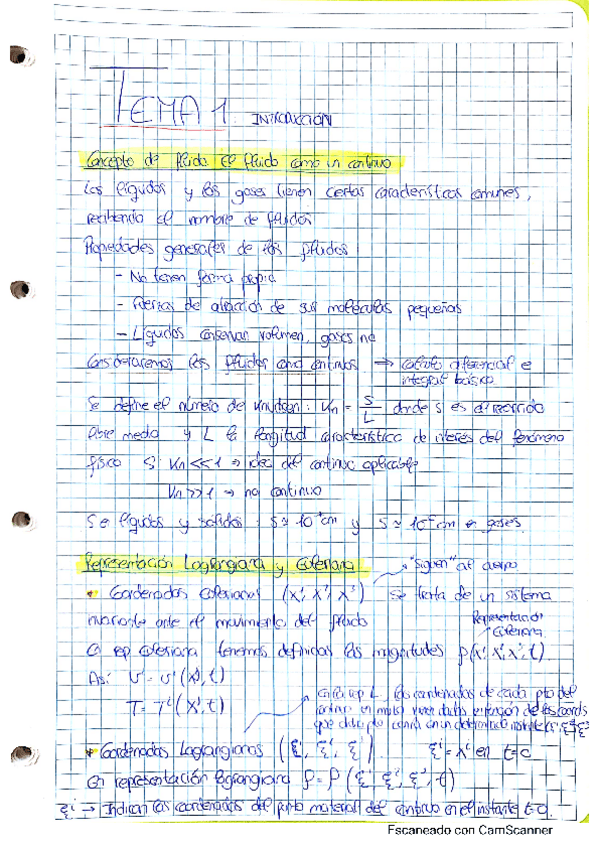 TEMA 1. INTRODUCCIÓN
Concepto de fluido. El fluido como un continuo
Los líquidos y los gases tienen ciertas características comunes,
recibiendo el nombre de fluidos
Propiedades generales de los fluidos
- No tienen forma propia
- Fuerzas de atracción de sus moléculas pequeñas
- Líquidos conservan volumen, gases no
Consideraremos los fluidos como continuos → cálculo diferencial e
integral básico
Se define el número de Knudsen: Kn = S/L donde S es el recorrido
libre medio y L la longitud característica de interés del fenómeno
físico Si Kn<<1 → idea del continuo aplicable
Kn>>1 → no continuo
líquidos y sólidos: S ≈ cm y S ≈ cm en gases.
Representación Lagrangiana y Euleriana
"siguen" al cuerpo
• Coordenadas Eulerianas (x¹, x², x³) se trata de un sistema
ante el movimiento del fluido
Representación
Euleriana
En rep euleriana tenemos definidas las magnitudes ρ(x¹,x²,x³,t).
Así: vⁱ = vⁱ(xʲ, t)
T = (xʲ, t)
En rep L, las coordenadas de cada pto del
en función de las coords
que en un determinado instante
• Coordenadas Lagrangianas (ξ¹, ξ², ξ³). ξⁱ = xⁱ en t=0
En representación lagrangiana ρ = ρ(ξ¹, ξ², ξ³, t)
ξⁱ → Indican las coordenadas del punto material del continuo en el instante t=0.
Escaneado con CamScanner